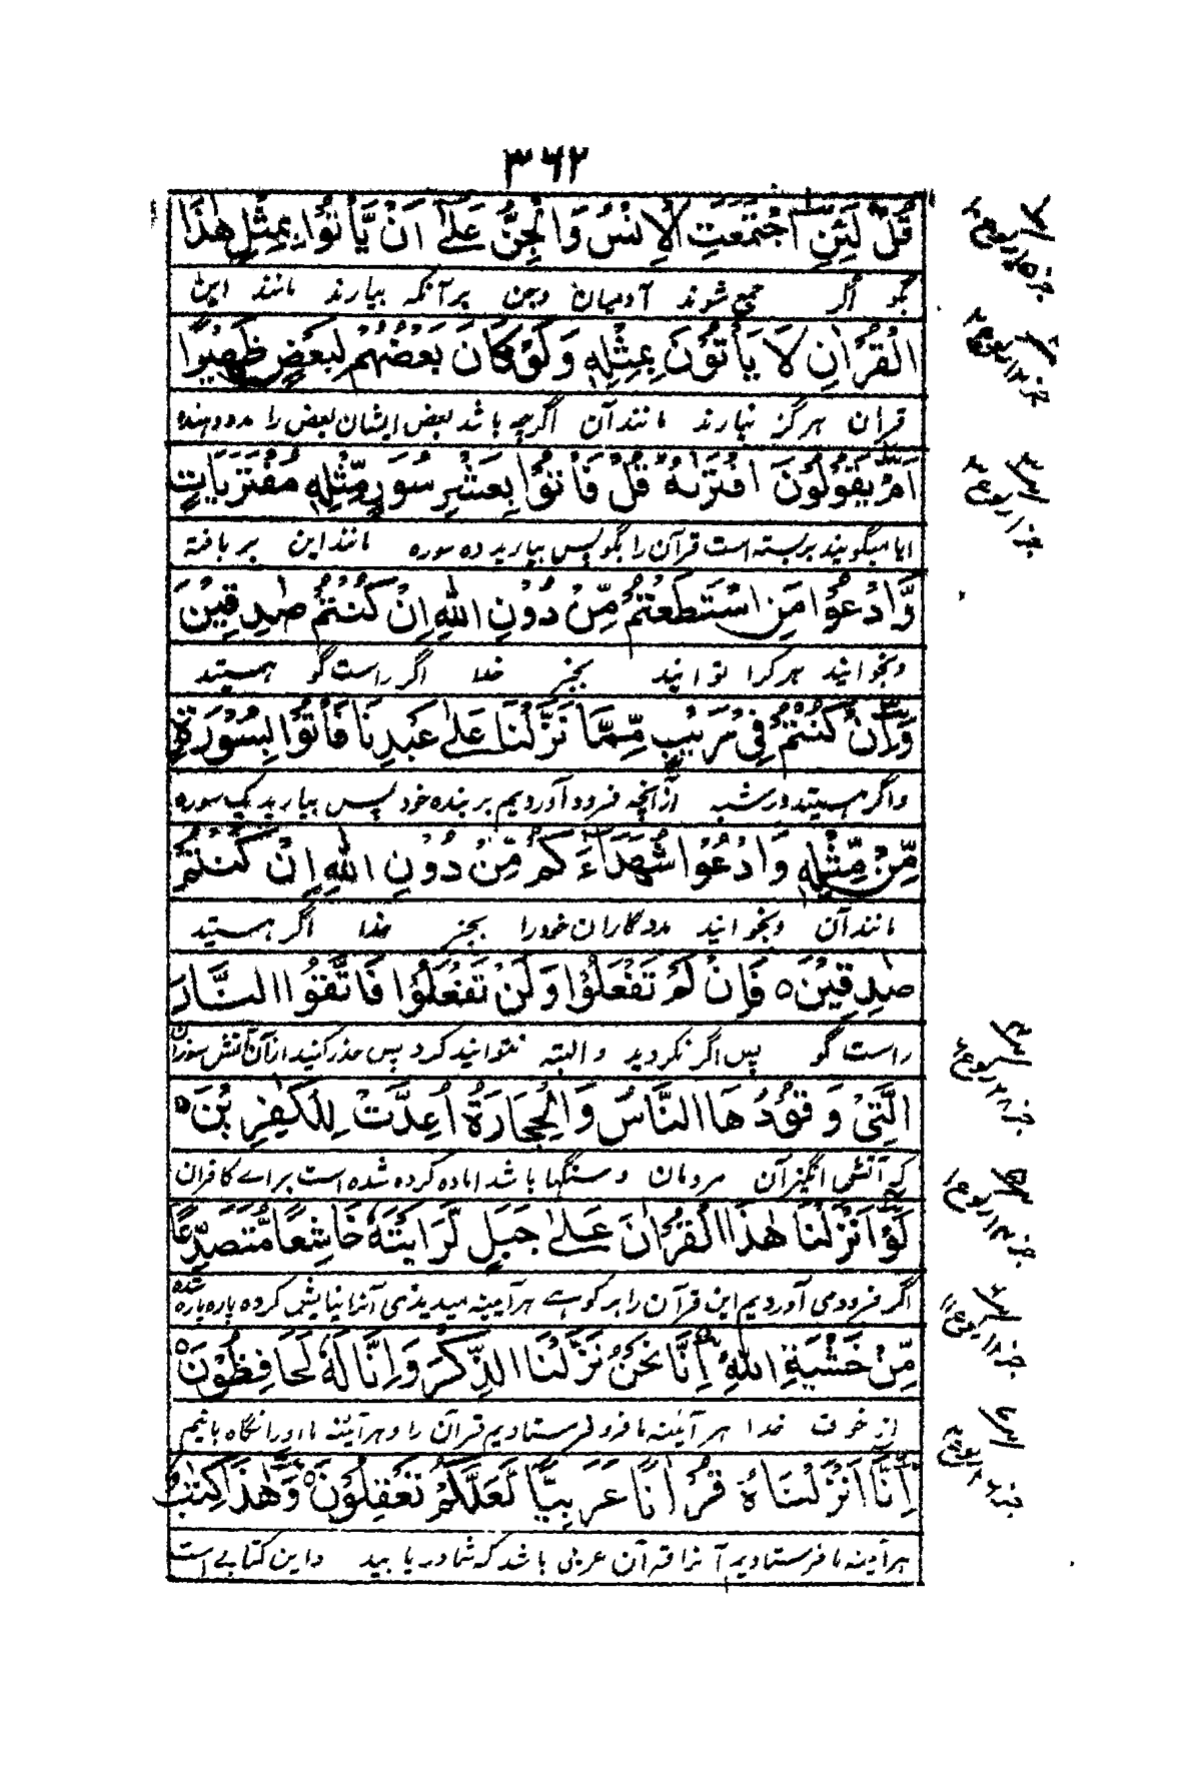 ۳۶۲
قُلْ لَئِنِ اجْتَمَعَتِ الْاِنْسُ وَالْجِنُّ عَلٰٓى اَنْ يَّأْتُوْا بِمِثْلِ هٰذَا
بگو اگر جمع شوند آدمیان وجن برآنکہ بیارند مانند این
الْقُرْاٰنِ لَا يَأْتُوْنَ بِمِثْلِهٖ وَلَوْ كَانَ بَعْضُهُمْ لِبَعْضٍ ظَهِيْرًا
قران ہرگز نیارند مانند آن اگرچہ باشد بعض ایشان بعض را مدد دہندہ
اَمْ يَقُوْلُوْنَ افْتَرٰىهُ قُلْ فَأْتُوْا بِعَشْرِ سُوَرٍ مِّثْلِهٖ مُفْتَرَيَاتٍ
ایا میگویند بربستہ است قرآن را بگو پس بیارید دہ سورہ مانند این بر بافتہ
وَّادْعُوْا مَنِ اسْتَطَعْتُمْ مِّنْ دُوْنِ اللهِ اِنْ كُنْتُمْ صٰدِقِيْنَ
وبخوانید ہرکرا توانید بجز خدا اگر راست گو ہستید
وَاِنْ كُنْتُمْ فِيْ رَيْبٍ مِّمَّا نَزَّلْنَا عَلٰى عَبْدِنَا فَأْتُوْا بِسُوْرَةٍ
واگر ہستید در شبہ ازانچہ فرود آوردیم بر بندہ خود پس بیارید یک سورہ
مِّنْ مِّثْلِهٖ وَادْعُوْا شُهَدَآءَكُمْ مِّنْ دُوْنِ اللهِ اِنْ كُنْتُمْ
مانند آن وبخوانید مددگاران خود را بجز خدا اگر ہستید
صٰدِقِيْنَ ○ فَاِنْ لَمْ تَفْعَلُوْا وَلَنْ تَفْعَلُوْا فَاتَّقُوا النَّارَ
راست گو پس اگر نکردید والبتہ نتوانید کرد پس حذر کنید ازان آتش سوزان
الَّتِيْ وَقُوْدُهَا النَّاسُ وَالْحِجَارَةُ اُعِدَّتْ لِلْكٰفِرِيْنَ ○
کہ آتش انگیز آن مردمان و سنگہا باشد امادہ کردہ شدہ است براے کافران
لَوْ اَنْزَلْنَا هٰذَا الْقُرْاٰنَ عَلٰى جَبَلٍ لَّرَاَيْتَهٗ خَاشِعًا مُّتَصَدِّعًا
اگر فرود می آوردیم این قرآن را بر کوہے ہرآیینہ میدیدی آنرا نیایش کردہ پارہ پارہ شدہ
مِّنْ خَشْيَةِ اللهِ ○ اِنَّا نَحْنُ نَزَّلْنَا الذِّكْرَ وَاِنَّا لَهٗ لَحَافِظُوْنَ ○
از خوف خدا ہرآئینہ ما فرو فرستادیم قرآن را وہرآئینہ ما اورا نگاہ بانیم
اِنَّا اَنْزَلْنَاهُ قُرْاٰنًا عَرَبِيًّا لَّعَلَّكُمْ تَعْقِلُوْنَ ○ وَهٰذَا كِتٰبٌ
ہرآیینہ ما فرستادیم آنرا قرآن عربی باشد کہ شما دریابید واین کتابے است